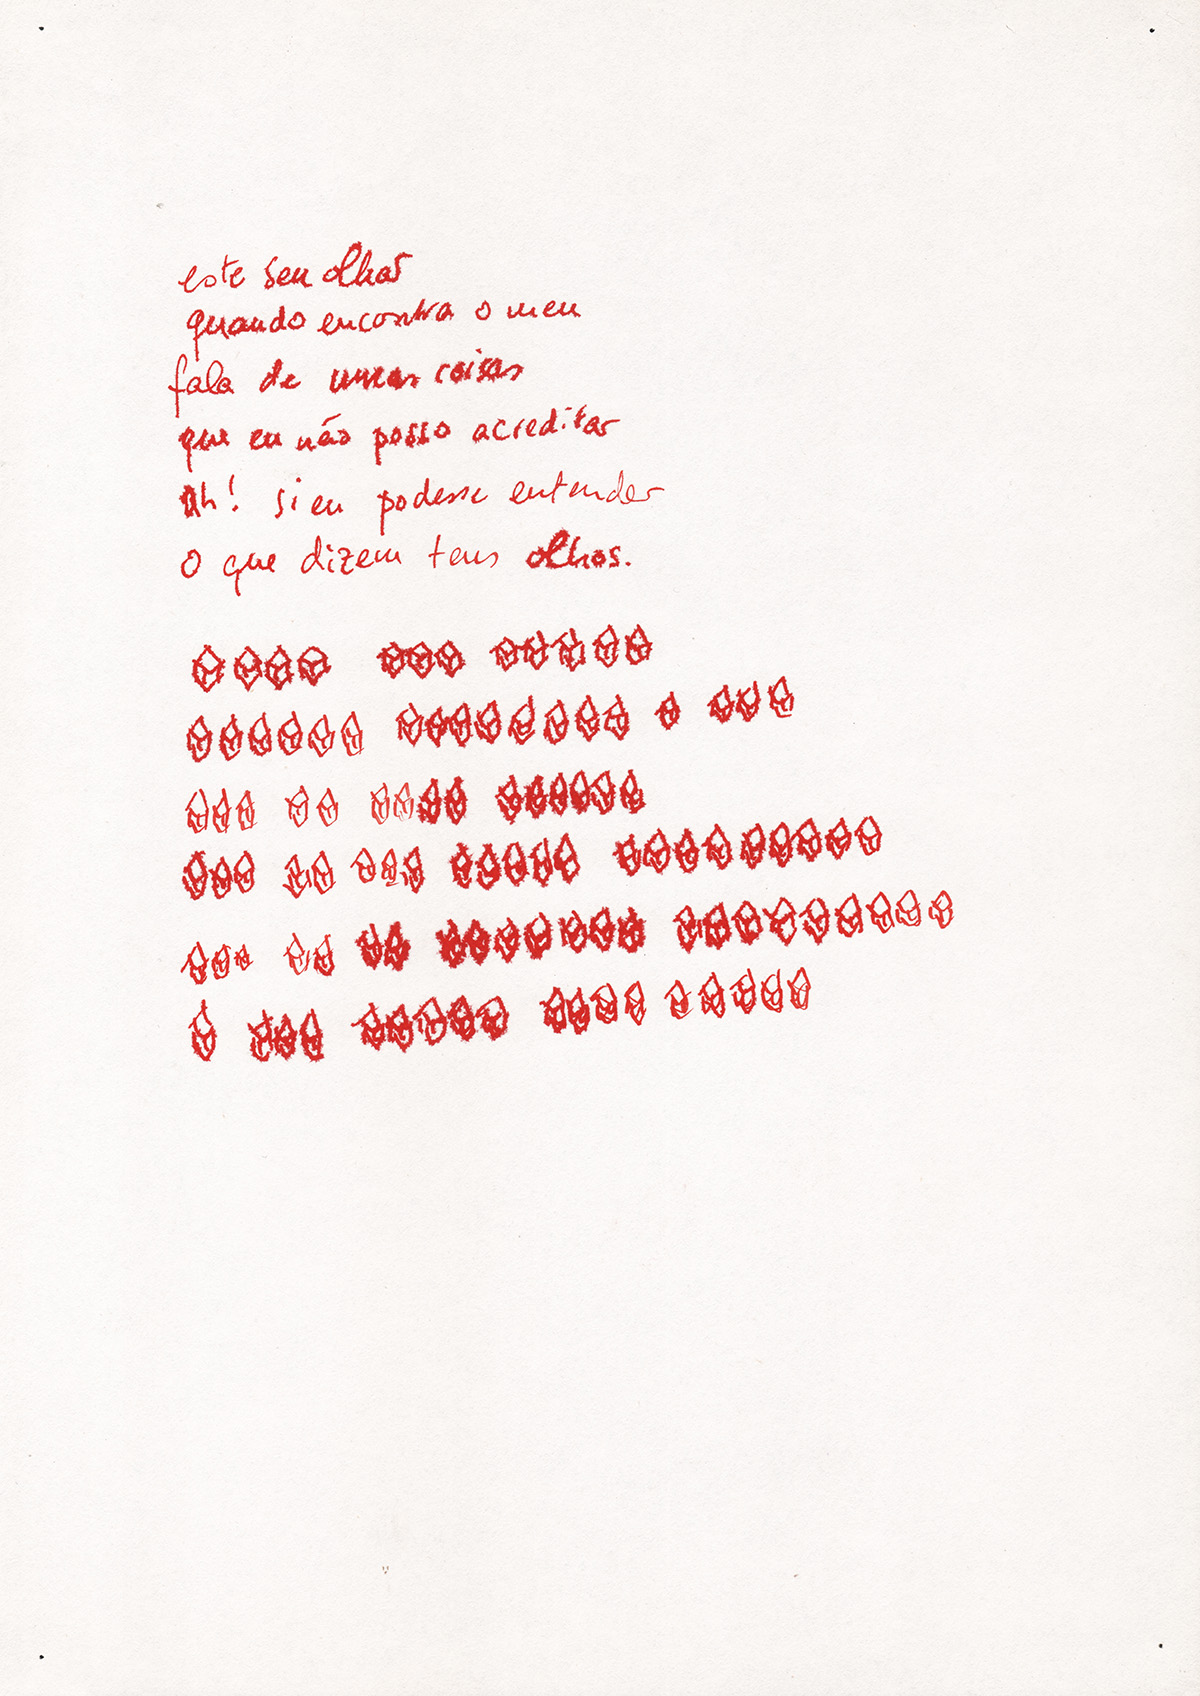 este seu olhar
quando encontra o meu
fala de umas coisas
que eu não posso acreditar
Ah! si eu podesse entender
O que dizem teus olhos.